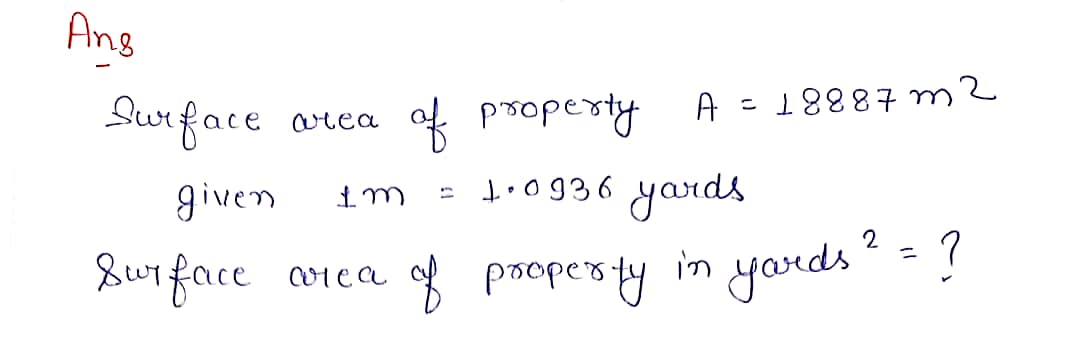 Ans
Surface area of property A = 18887 m²
given 1m = 1.0936 yards
Surface area of property in yards² = ?